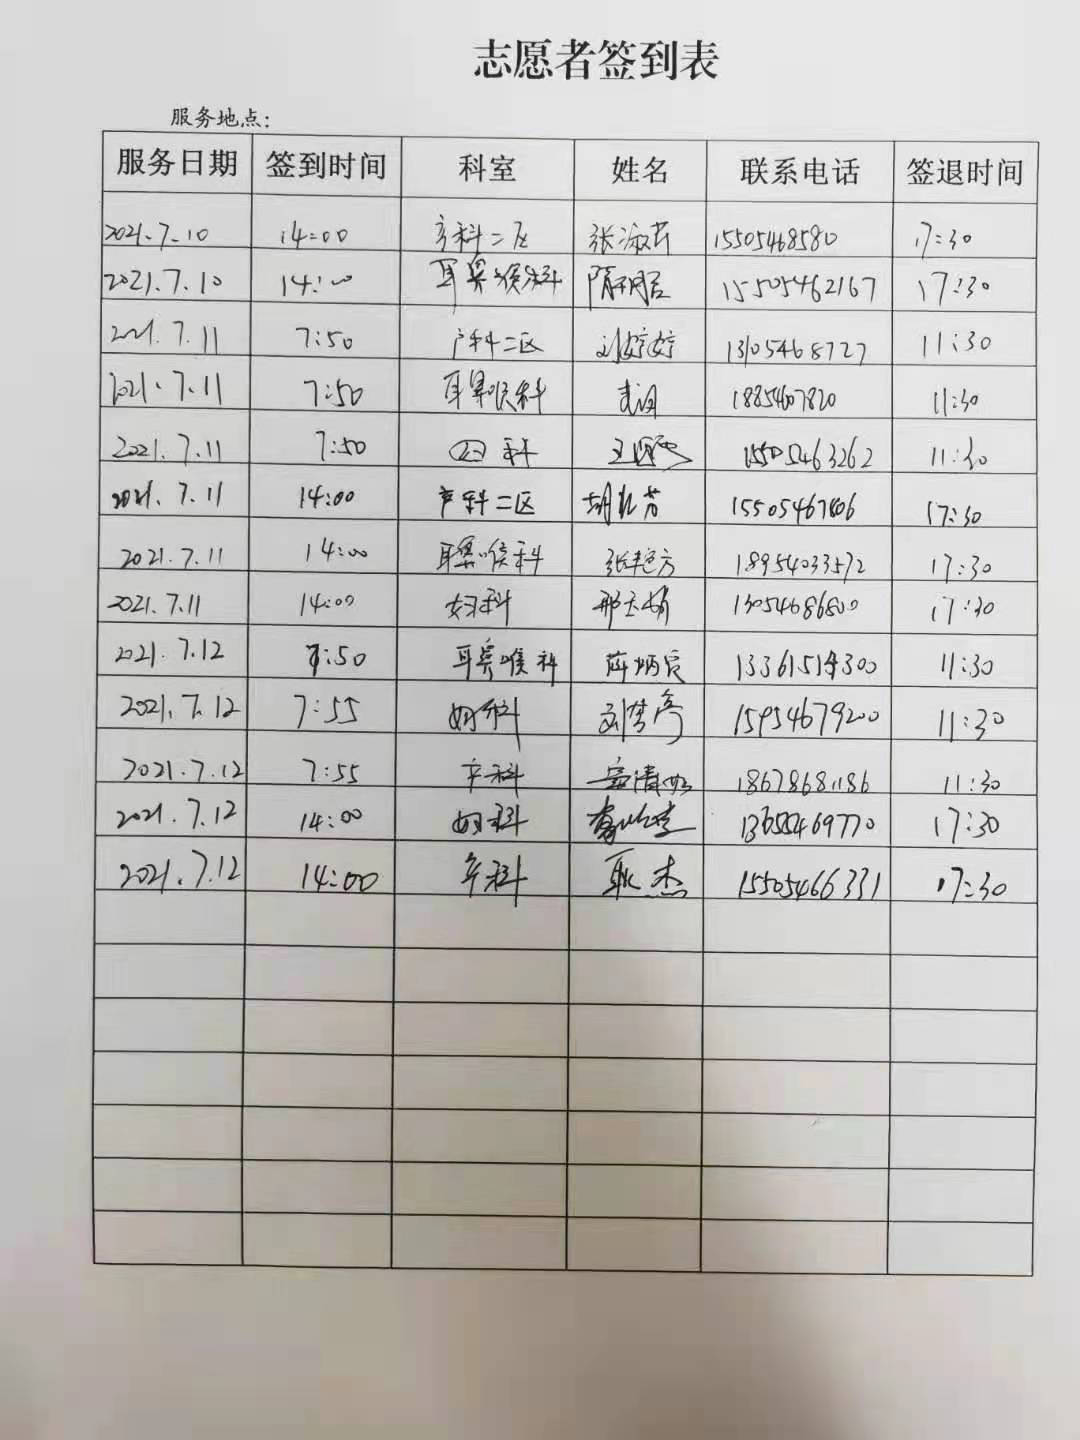 志愿者签到表
服务地点:
服务日期 签到时间 科室 姓名 联系电话 签退时间
2021.7.10 14:00 产科二区 张淑芹 15505468580 17:30
2021.7.10 14:00 耳鼻喉科 15505462167 17:30
2021.7.11 7:50 产科二区 刘婷婷 13105468727 11:30
2021.7.11 7:50 耳鼻喉科 11:30
2021.7.11 7:50 科 15505463262 11:30
2021.7.11 14:00 产科二区 胡 芳 15505467806 17:30
2021.7.11 14:00 耳鼻喉科 张艳方 18954033572 17:30
2021.7.11 14:00 妇科 邢玉娇 13054686800 17:30
2021.7.12 7:50 耳鼻喉科 13361514300 11:30
2021.7.12 7:55 妇科 刘梦 15954679200 11:30
2021.7.12 7:55 产科 清 18678681186 11:30
2021.7.12 14:00 妇科 13655469770 17:30
2021.7.12 14:00 产科 耿杰 15505466331 17:30